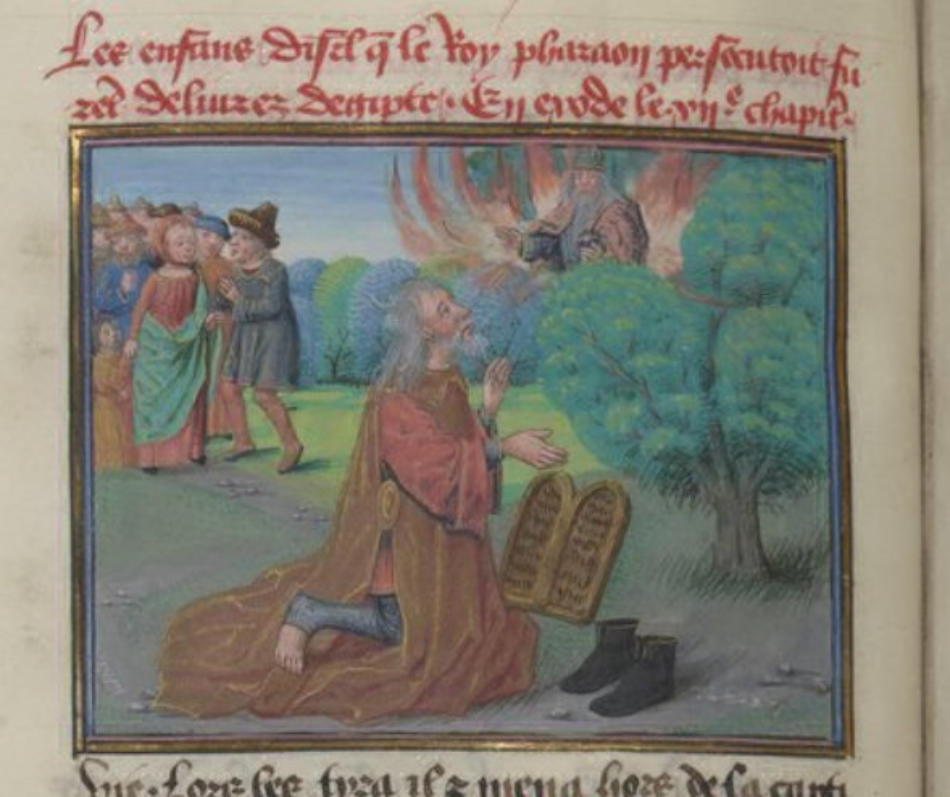 Les enfans disrl q̃ le Roy pharaon persecutoit fu
rẽt deliurez degipte. En exode le .xii.e chapit̃.
lors les tyra il & mena hors de la capti